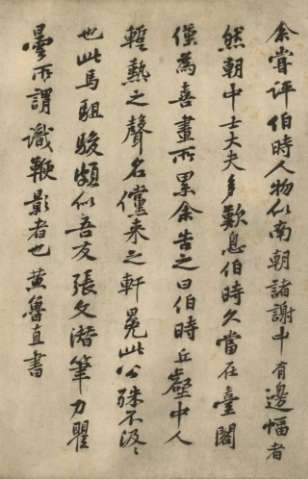 余嘗評伯時人物似南朝諸謝中有邊幅者
然朝中士大夫多歎息伯時久當在臺閣
僅為喜畫所累余告之曰伯時丘壑中人
輕熱之聲名儻来之軒冕此公殊不汲〻
也此馬駔駿頗似吾友張文潜筆力瞿
曇所謂識鞭影者也黄魯直書